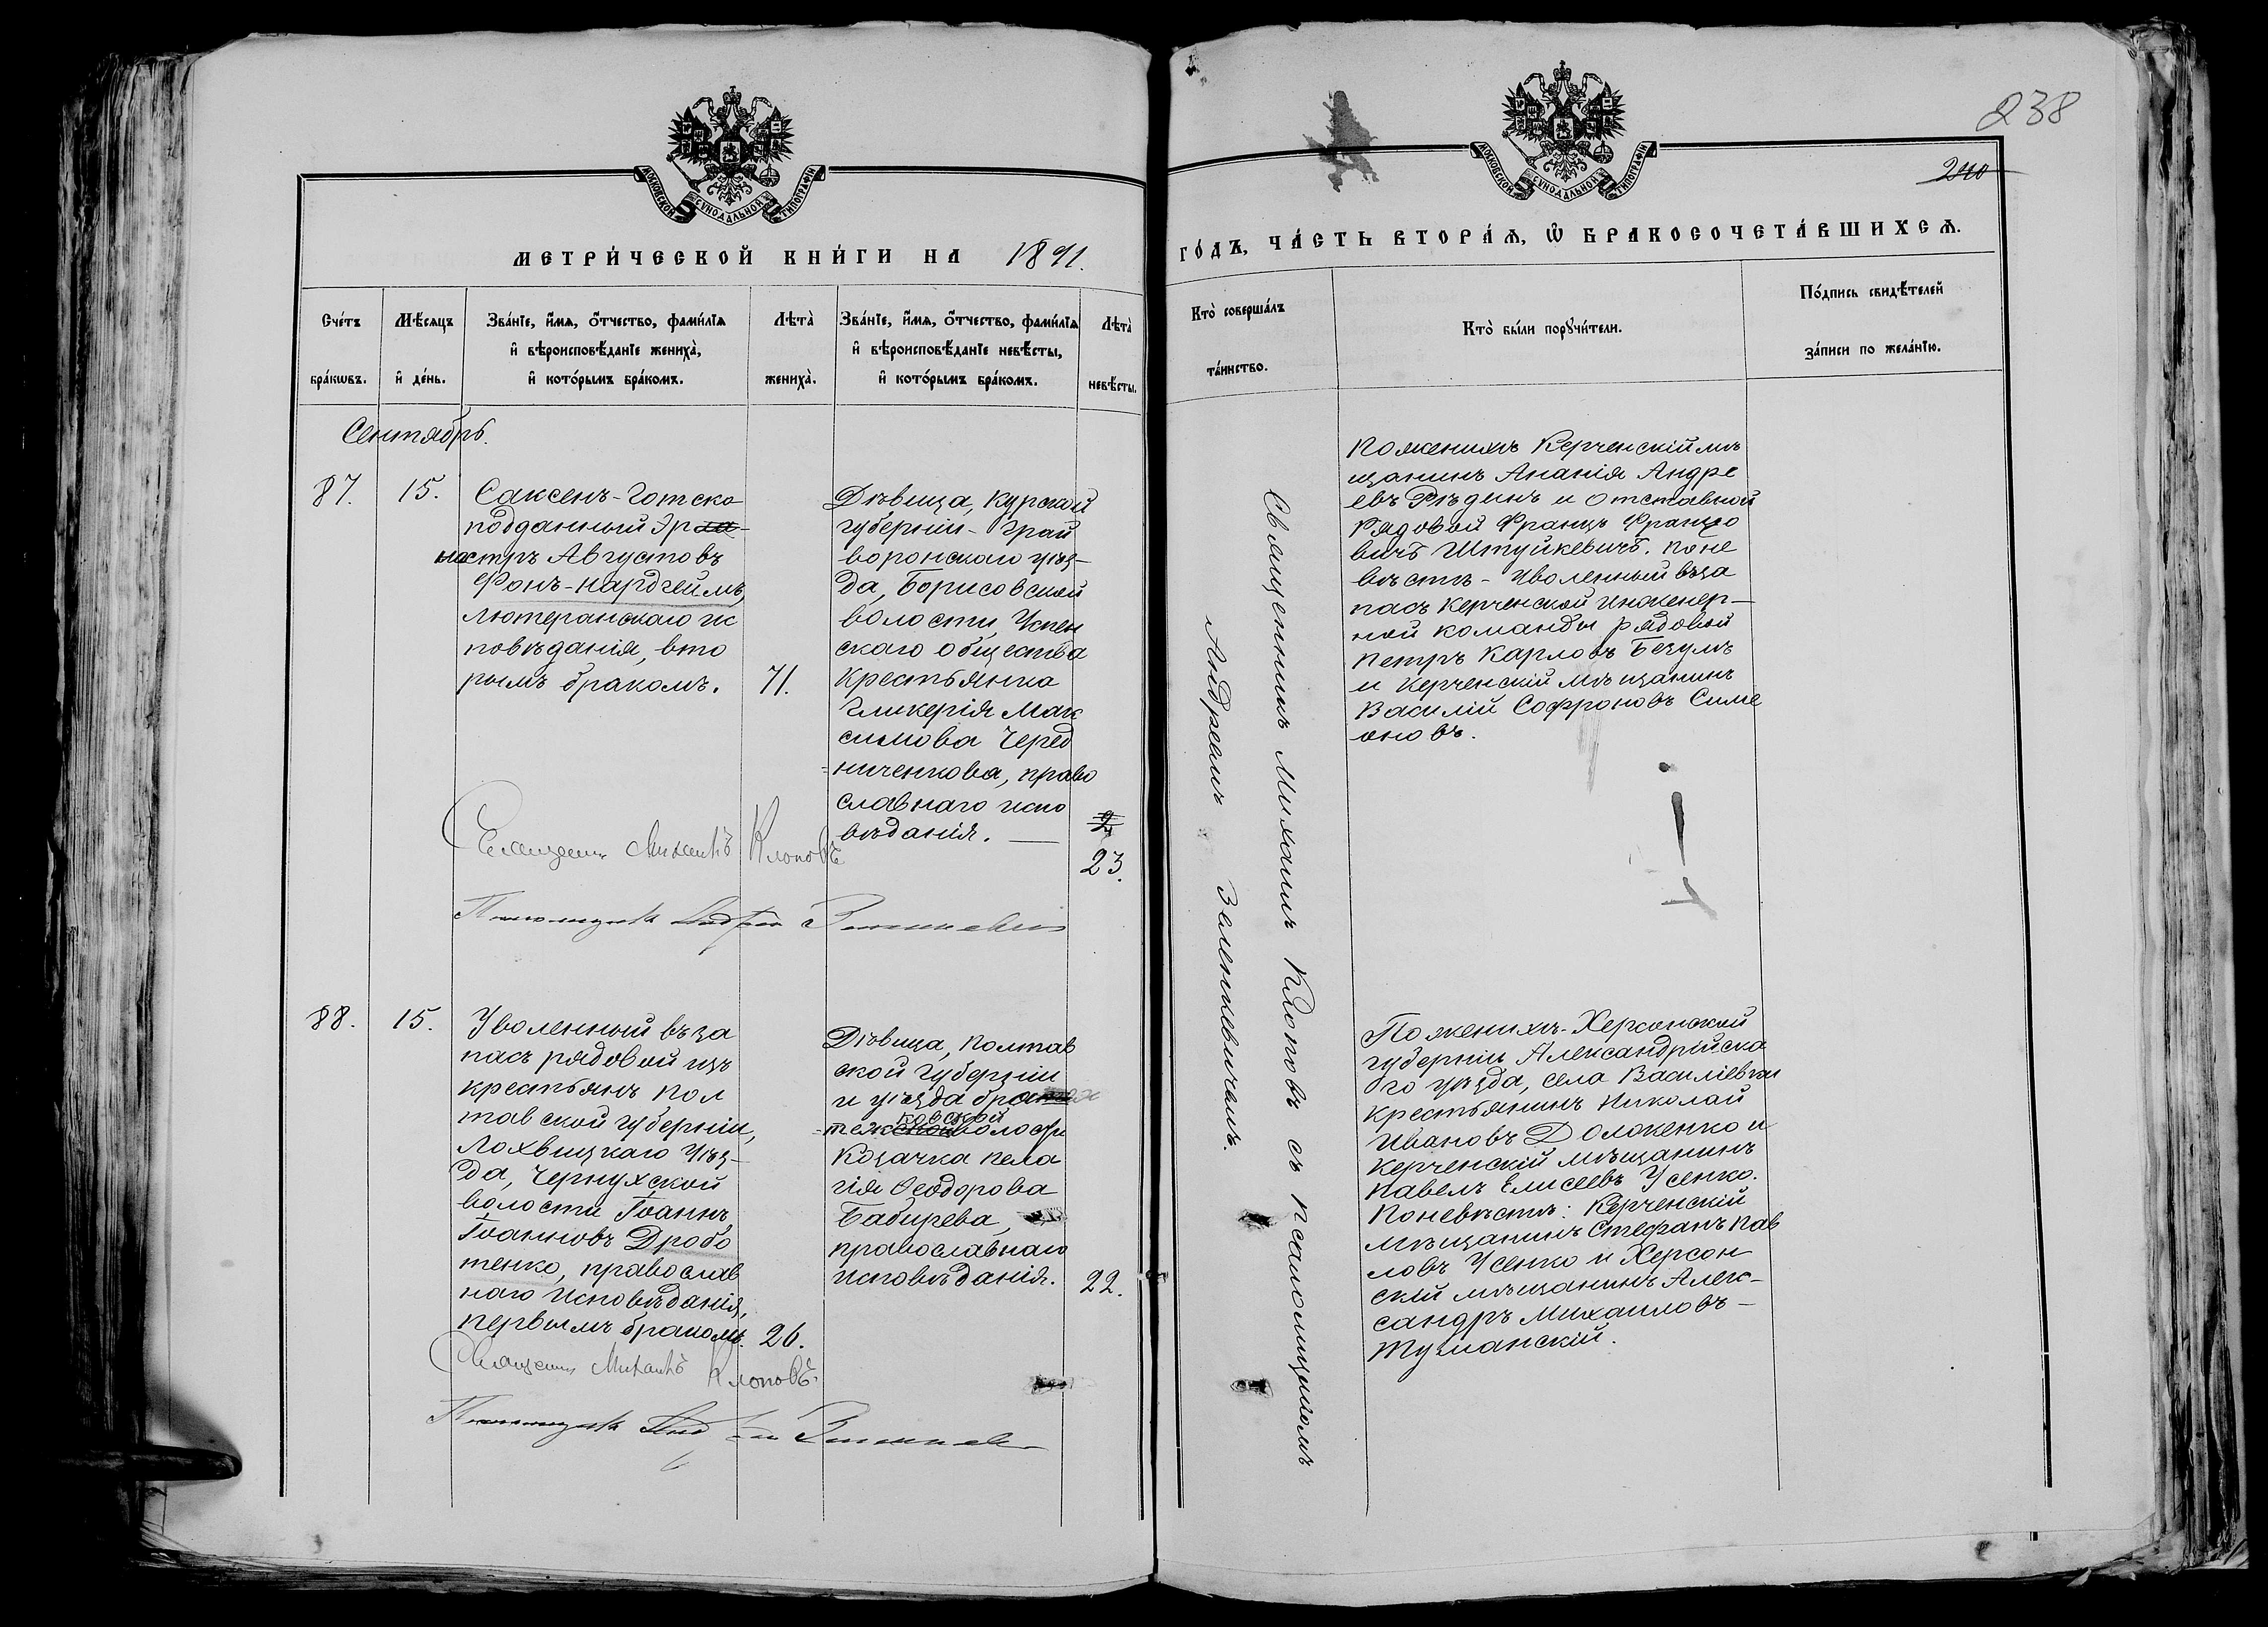 238
240
МОСКОВСКОЙ СѴНОДАЛЬНОЙ ТИПОГРАФІИ
МОСКОВСКОЙ СѴНОДАЛЬНОЙ ТИПОГРАФІИ
МЕТРИ́ЧЕСКОЙ КНИ́ГИ НА 1891.
ГО́ДЪ, ЧА́СТЬ ВТОРА́Ѧ, Ѡ҆ БРАКОСОЧЕТА́ВШИХСѦ.
Сче́тъ бра́кѡвъ.
Мѣ́сѧцъ и҆ де́нь.
Зва́нїе, и҆́мѧ, ѻ҆́тчество, фами́лїѧ
и҆ вѣроисповѣ́данїе жениха̀,
и҆ кото́рымъ бра́комъ.
Лѣта̀ жениха̀.
Зва́нїе, и҆́мѧ, ѻ҆́тчество, фами́лїѧ
и҆ вѣроисповѣ́данїе невѣ́сты,
и҆ кото́рымъ бра́комъ.
Лѣта̀ невѣ́сты.
Кто̀ соверша́лъ
та́инство.
Кто̀ бы́ли порꙋчи́тели.
По́дпись свидѣ́телей
за́писи по жела́нїю.
Сентябрь.
87.
15.
Саксенъ-Готско
подданный
Августовъ
Фонъ-Нардгеймъ,
лютеранскаго ис
повѣданія, вто
рымъ бракомъ.
71.
Дѣвица, Курской
губерніи - Грай
воронскаго уѣз-
да, Борисовской
волости, Успен
скаго общества
крестьянка
Гликерія Мак
симова Черед
=ниченкова, право
славнаго испо
вѣданія. —
2
23.
Священникъ Михаилъ Клоповъ
Псаломщикъ Андрей Зеленкевичъ
Священникъ Михаилъ Клоповъ съ псаломщикомъ
Андреемъ Зеленкевичемъ.
По женихѣ Керченскій мѣ
щанинъ Ананія Андре
евъ Рѣдинъ и отставной
Рядовой Францъ Францо
вичъ Штуйкевичъ. По не
вѣстѣ - Уволенный въ за
пасъ Керченской инженер-
ной команды рядовой
Петръ Карловъ
и Керченскій мѣщанинъ
Василій Софроновъ Симе
оновъ.
88.
15.
Уволенный въ за
пасъ рядовой изъ
крестьянъ Пол
тавской губерніи,
Лохвицкаго уѣз-
да, Чернухской
волости Іоаннъ
Іоанновъ Дробо
тенко, православ
наго исповѣданія,
первымъ бракомъ.
26.
Дѣвица, Полтав
ской губерніи
и уѣзда
ковской
волости
Козачка Пела
гія Ѳеодорова
Бабирева,
православнаго
исповѣданія.
22.
Священникъ Михаилъ Клоповъ.
Псаломщикъ Андрей Зеленкевичъ
По женихѣ - Херсонской
губерніи Александрійска
го уѣзда, села Василіевки
крестьянинъ Николай
Ивановъ Долженко и
Керченскій мѣщанинъ
Павелъ Елисеевъ Усенко.
По невѣстѣ: Керченскій
мѣщанинъ Стефанъ Пав
ловъ Усенко и Херсон
скій мѣщанинъ Алек-
сандръ Михаиловъ -
Туманскій.